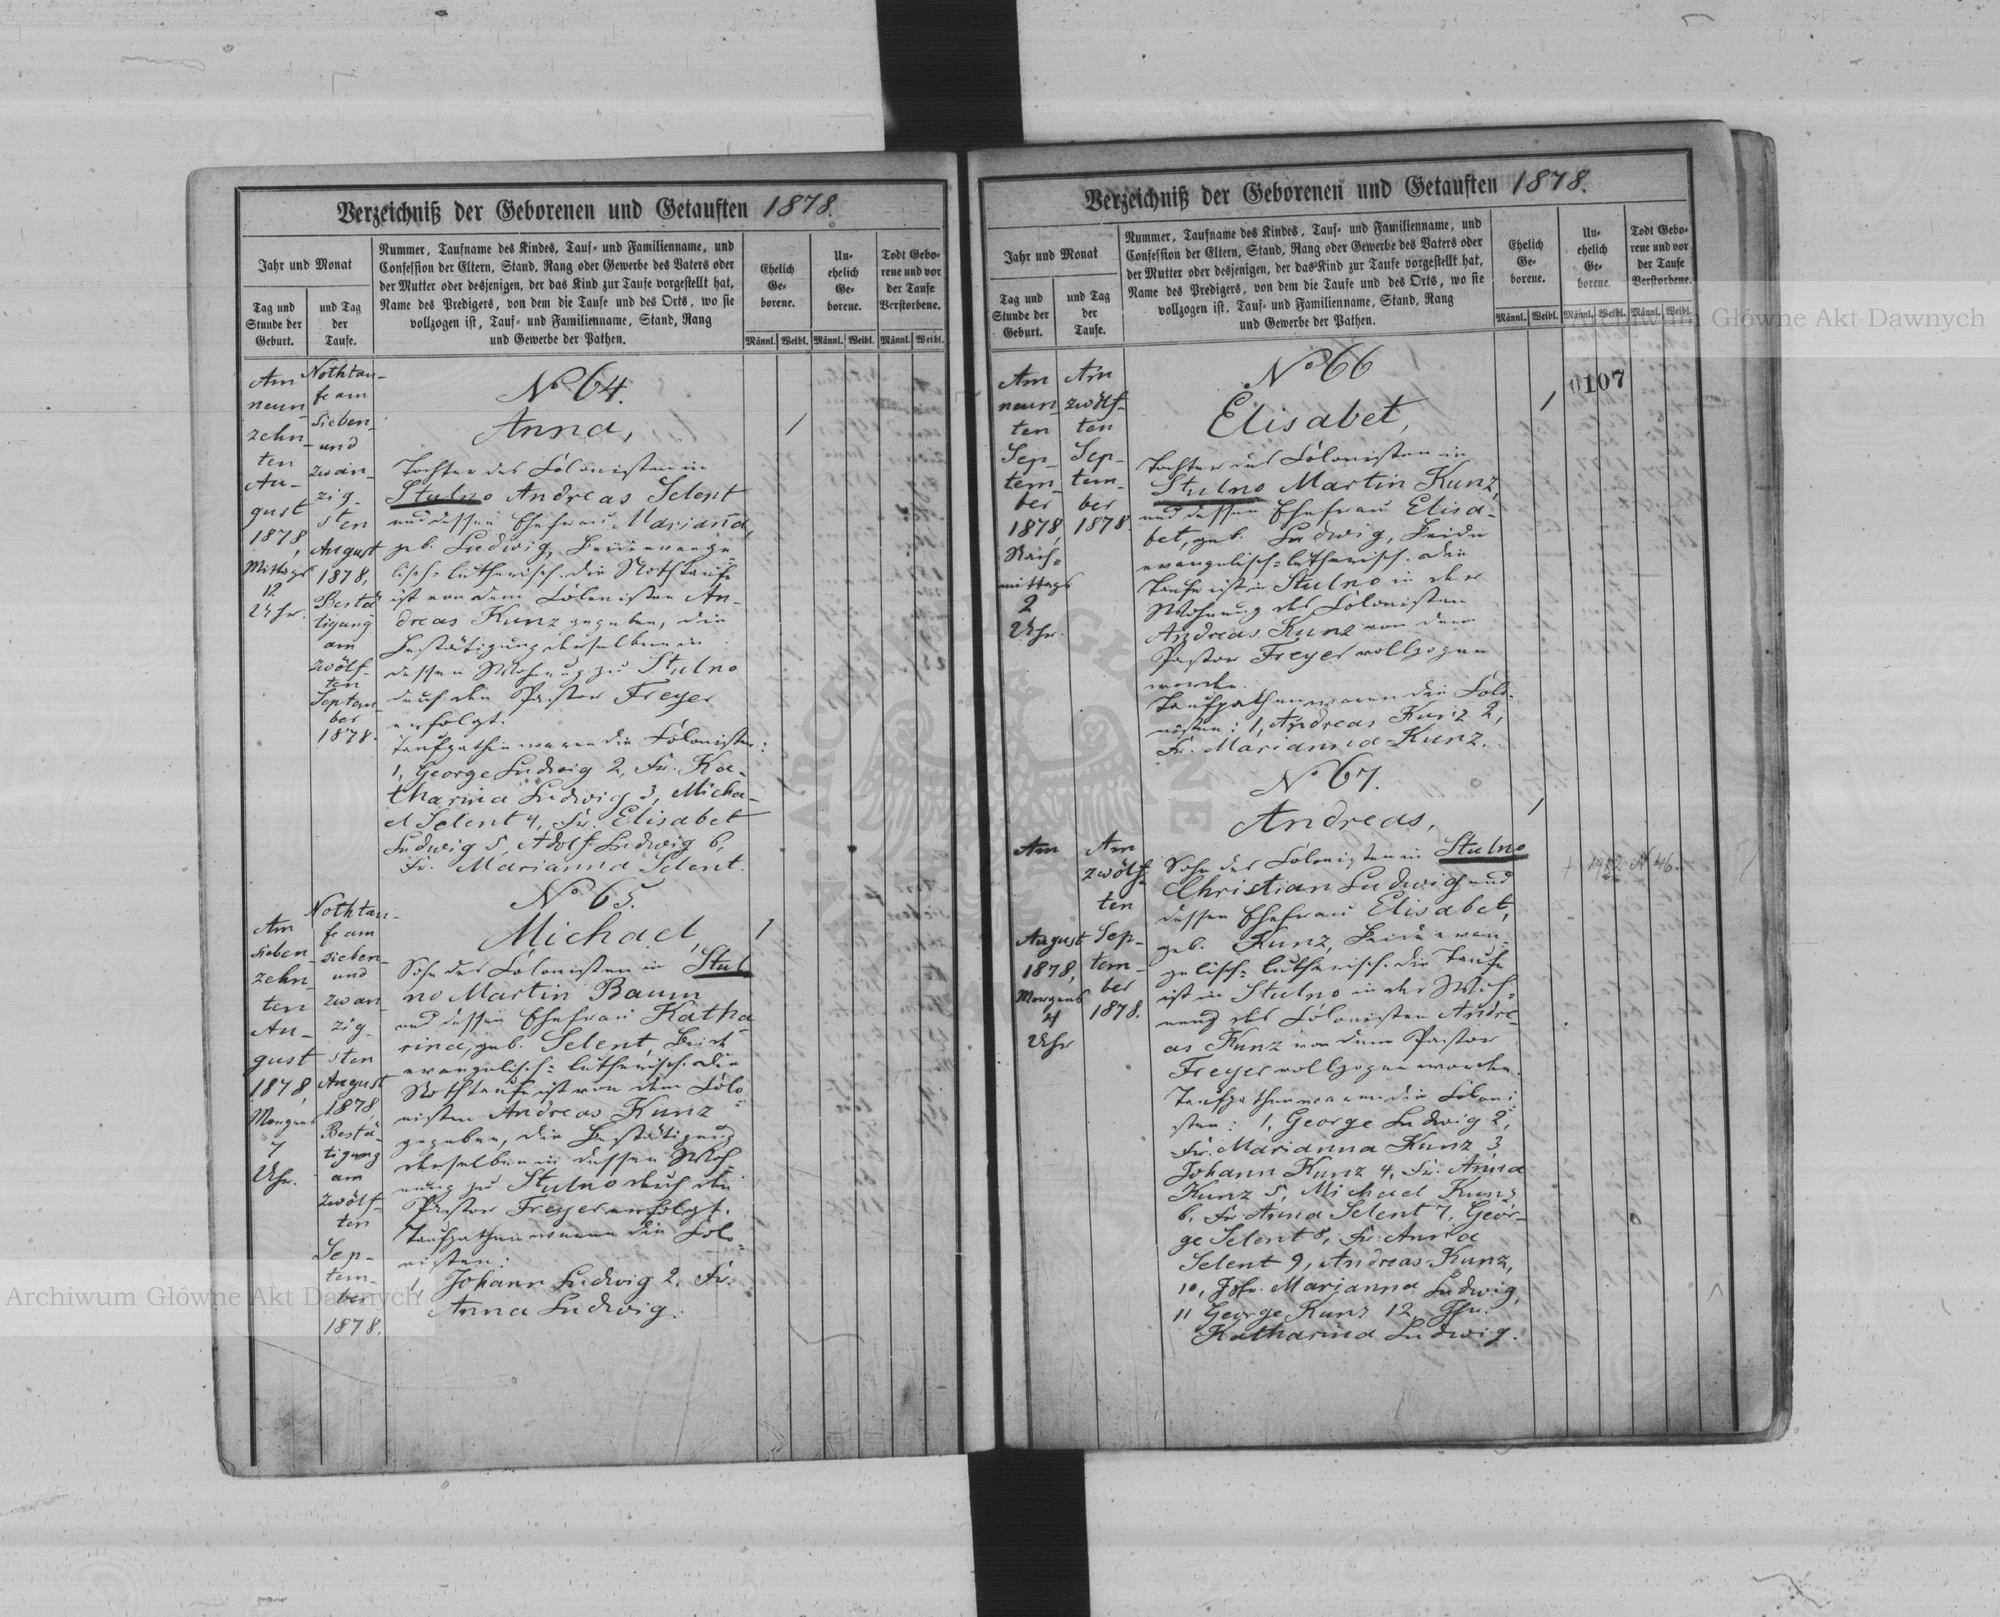 Verzeichniß der Geborenen und Getauften 1878.
Jahr und Monat
Tag und
Stunde der
Geburt.
und Tag
der
Taufe.
Nummer, Taufname des Kindes, Tauf- und Familienname, und
Confession der Eltern, Stand, Rang oder Gewerbe des Vaters oder
der Mutter oder desjenigen, der das Kind zur Taufe vorgestellt hat,
Name des Predigers, von dem die Taufe und des Orts, wo sie
vollzogen ist, Tauf- und Familienname, Stand, Rang
und Gewerbe der Pathen.
Ehelich
Ge-
borene.
Un-
ehelich
Ge-
borene.
Todt Gebo-
rene und vor
der Taufe
Verstorbene.
Männl. Weibl. Männl. Weibl. Männl. Weibl.
Am
neun-
zehn-
ten
Au-
gust
1878,
Mittags
12
Uhr.
Nothtau-
fe am
sieben-
und
zwan-
zig-
sten
August
1878,
Bestä-
tigung
am
zwölf-
ten
Septem-
ber
1878.
No 64.
Anna,
Tochter des Colonisten in
Stulno Andreas Selent
und dessen Ehefrau Marianna,
geb. Ludwig, Beide evange-
lisch-lutherisch. Die Nothtaufe
ist von dem Colonisten An-
dreas Kunz gegeben, die
Bestätigung derselben in
dessen Wohnung zu Stulno
durch den Pastor Freyer
erfolgt.
Taufpathen waren die Colonisten:
1, George Ludwig 2, Fr. Ka-
tharina Ludwig 3, Micha-
el Selent 4, Fr. Elisabet
Ludwig 5, Adolf Ludwig 6,
Fr. Marianna Selent.
1
Am
sieben-
zehn-
ten
Au-
gust
1878,
Morgens
7
Uhr.
Nothtau-
fe am
sieben-
und
zwan-
zig-
sten
August
1878
Bestä-
tigung
am
zwölf-
ten
Sep-
tem-
ber
1878.
No 65.
Michael,
Sohn des Colonisten in Stul-
no Martin Baum
und dessen Ehefrau Katha-
rina, geb. Selent, Beide
evangelisch-lutherisch. Die
Nothtaufe ist von dem Colo-
nisten Andreas Kunz
gegeben, die Bestätigung
derselben in dessen Woh-
nung zu Stulno durch den
Pastor Freyer erfolgt.
Taufpathen waren die Colo-
nisten:
1, Johann Ludwig 2. Fr.
Anna Ludwig.
1
Verzeichniß der Geborenen und Getauften 1878.
Jahr und Monat
Tag und
Stunde der
Geburt.
und Tag
der
Taufe.
Nummer, Taufname des Kindes, Tauf- und Familienname, und
Confession der Eltern, Stand, Rang oder Gewerbe des Vaters oder
der Mutter oder desjenigen, der das Kind zur Taufe vorgestellt hat,
Name des Predigers, von dem die Taufe und des Orts, wo sie
vollzogen ist, Tauf- und Familienname, Stand, Rang
und Gewerbe der Pathen.
Ehelich
Ge-
borene.
Un-
ehelich
Ge-
borene.
Todt Gebo-
rene und vor
der Taufe
Verstorbene.
Männl. Weibl. Männl. Weibl. Männl. Weibl.
0107
Am
neun-
ten
Sep-
tem-
ber
1878,
Nach-
mittags
2
Uhr.
Am
zwölf-
ten
Sep-
tem-
ber
1878.
No 66
Elisabet,
Tochter des Colonisten in
Stulno Martin Kunz,
und dessen Ehefrau Elisa-
bet, geb. Ludwig, Beide
evangelisch-lutherisch. Die
Taufe ist in Stulno in der
Wohnung des Colonisten
Andreas Kunz von dem
Pastor Freyer vollzogen
worden.
Taufpathen waren die Colo-
nisten: 1, Andreas Kunz 2,
Fr. Marianna Kunz.
1
Am
August
1878,
Morgens
4
Uhr
Am
zwölf-
ten
Sep-
tem-
ber
1878.
No 67.
Andreas,
Sohn des Colonisten in Stulno
Christian Ludwig und
dessen Ehefrau Elisabet,
geb. Kunz, Beide evan-
gelisch-lutherisch. Die Taufe
ist in Stulno in der Woh-
nung des Colonisten Andre-
as Kunz von dem Pastor
Freyer vollzogen worden.
Taufpathen waren die Coloni-
sten: 1, George Ludwig 2,
Fr. Marianna Kunz 3,
Johann Kunz 4, Fr. Anna
Kunz 5, Michael Kunz
6, Fr. Anna Selent 7, Geor-
ge Selent 8, Fr. Anna
Selent 9, Andreas Kunz,
10, Jgfr. Marjanna Ludwig,
11 George Kunz 12, Jgfr.
Katharina Ludwig.
1
Archiwum Główne Akt Dawnych
Archiwum Główne Akt Dawnych